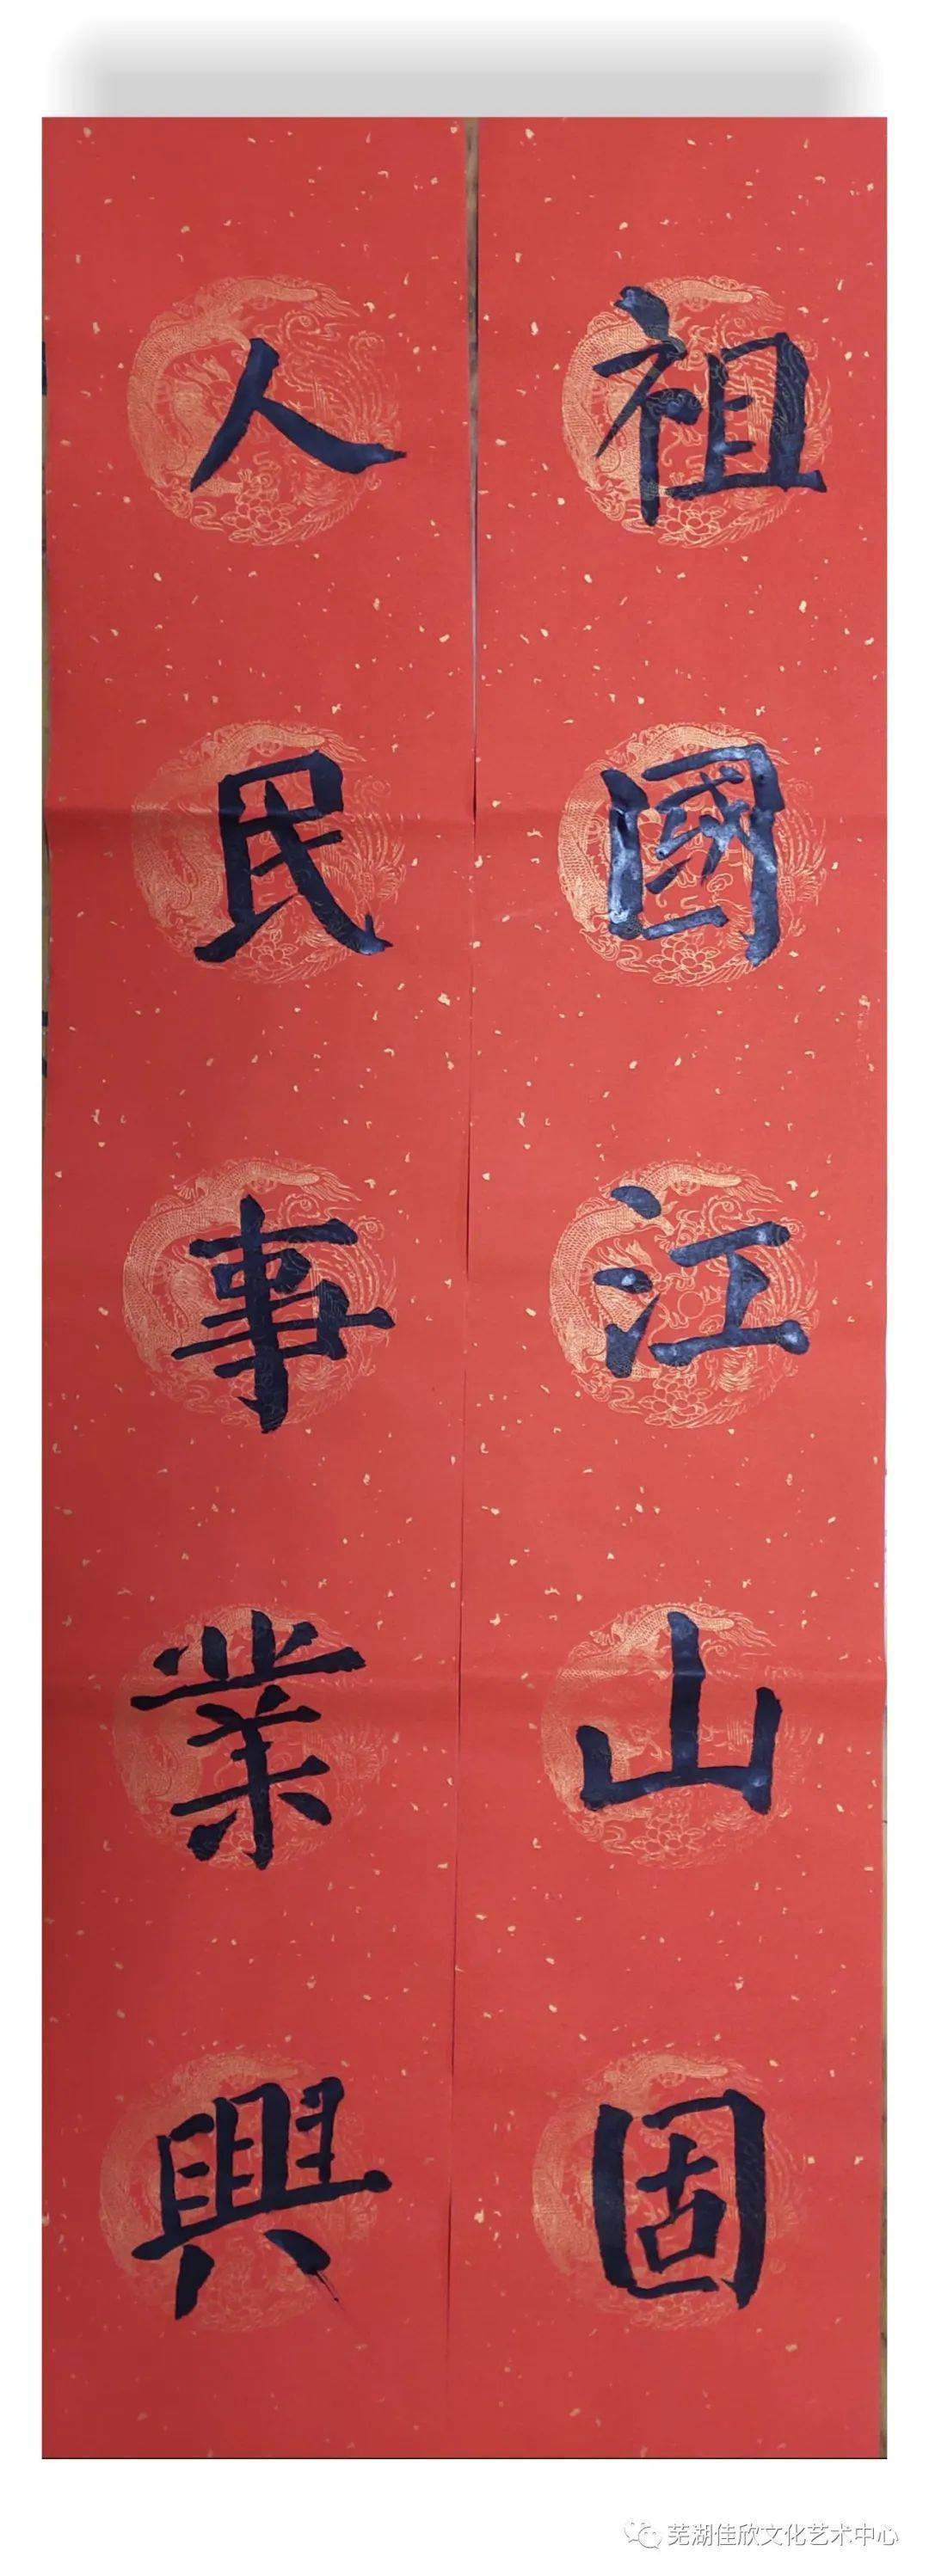 祖國江山固
人民事業興
芜湖佳欣文化艺术中心